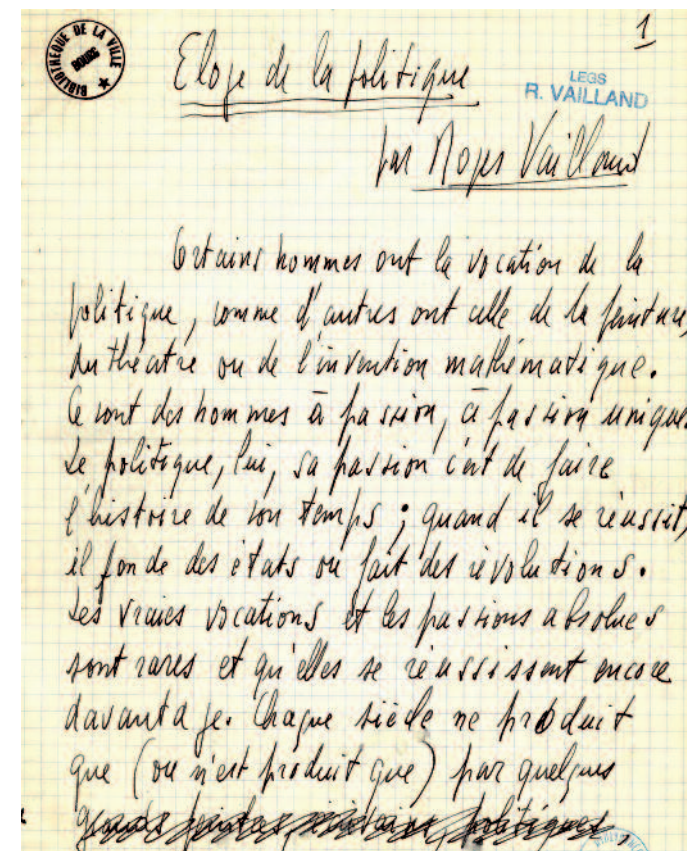 1
BIBLIOTHEQUE DE LA VILLE
BOURG
Eloge de la politique
LEGS
R. VAILLAND
par Roger Vailland
Certains hommes ont la vocation de la
politique, comme d'autres ont celle de la peinture,
du théâtre ou de l'invention mathématique.
Ce sont des hommes à passion, à passion unique.
Le politique, lui, sa passion c'est de faire
l'histoire de son temps ; quand il se réussit,
il fonde des états ou fait des révolutions.
Les vraies vocations et les passions absolues
sont rares et qu'elles se réussissent encore
davantage. Chaque siècle ne produit
que (ou n'est produit que) par quelques
grands peintres, politiques,